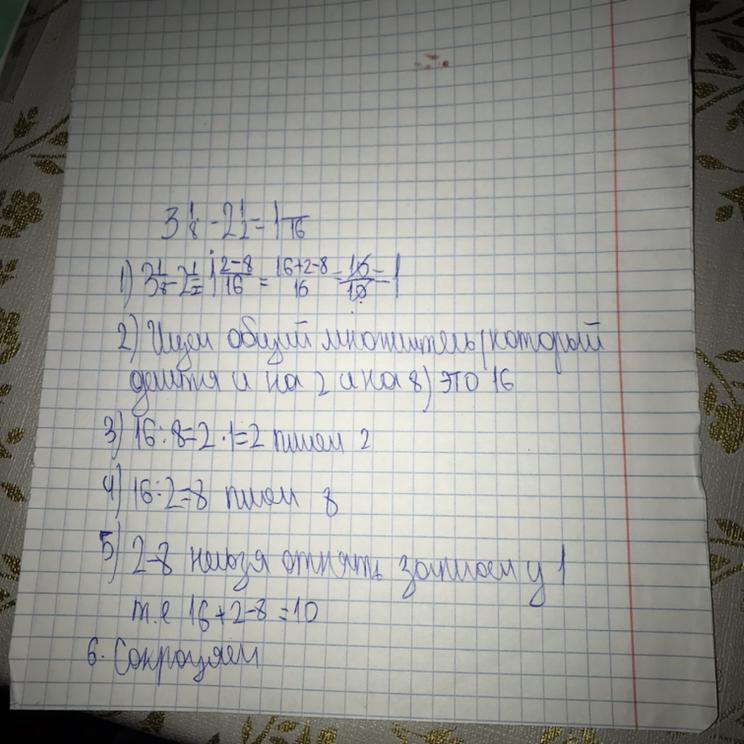 3 1/8 - 2 1/2 = 1 /16
1) 3 1/8 - 2 1/2 = 1 2-8/16 = 16+2-8/16 =
2) Ищем общий множитель (который
делится и на 2 и на 8) это 16
3) 16:8=2·1=2 пишем 2
4) 16:2=8 пишем 8
5) 2-8 нельзя отнять занимаем у 1
т.е 16+2-8=10
6. Сокращаем